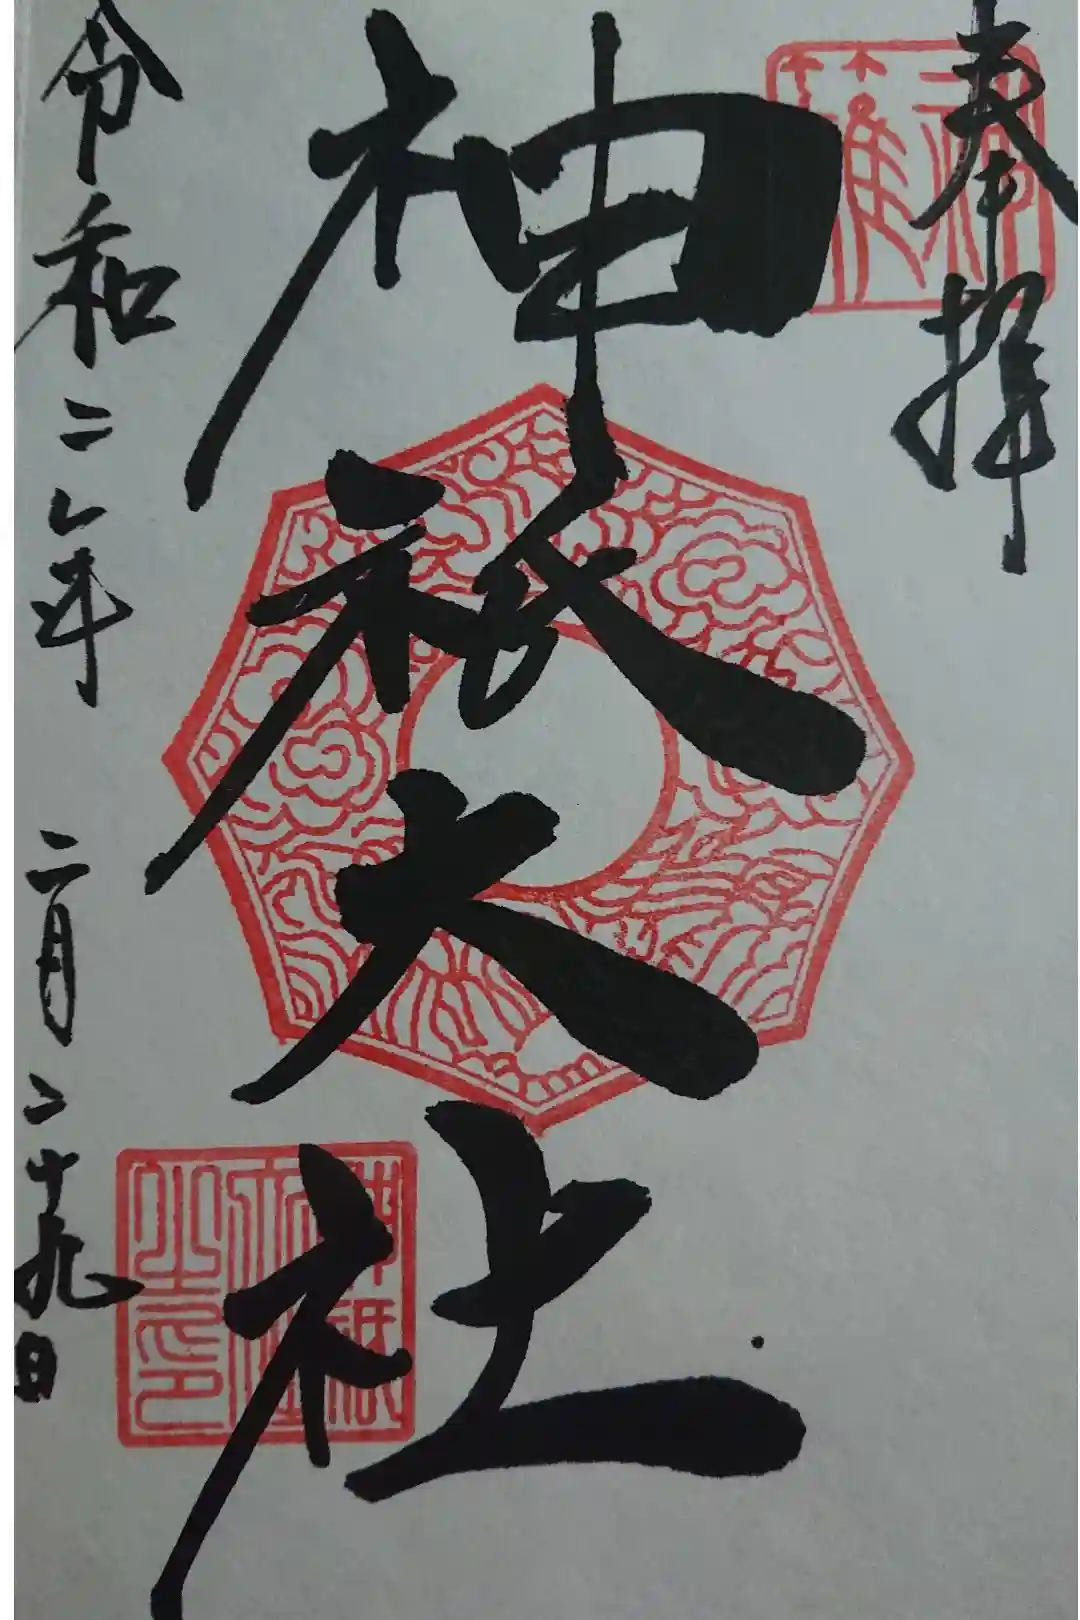 奉拝
神祇大社
令和二年 二月二十九日
神祇大社之印